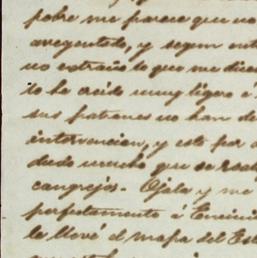 pobre me parece que no
avegentado, y segun ent
no extraño lo que me dice
lo ha sido muy ligero é
sus patrones no han de
intervencion, y esto por
dudo mucho que se real
cangrejos. Ojala y me
perfectamente á Encini
le llevé el mapa del Est